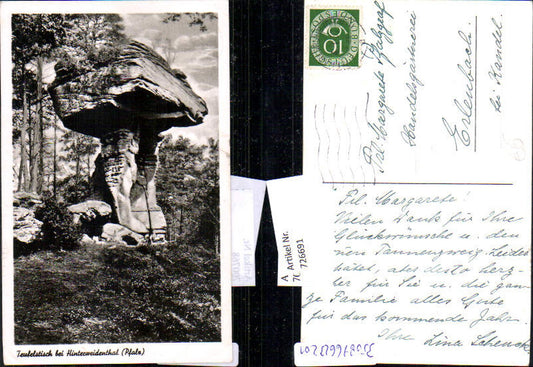 Teufelstisch bei Hinterweidenthal (Pfalz)
DEUTSCHE BUNDESPOST
10
Frl. Margarete Pfalzgraf
Handelsgärtnerei
Erlenbach
bei Kandel.
A Artikel Nr.
70 726691
Frl. Margarete!
Vielen Dank für Ihre
Glückwünsche u. den
Tannenzweig. Leider
aber desto herz-
für Sie u. die gan-
ze Familie alles Gute
für das kommende Jahr.
Ihre Lina Schenck